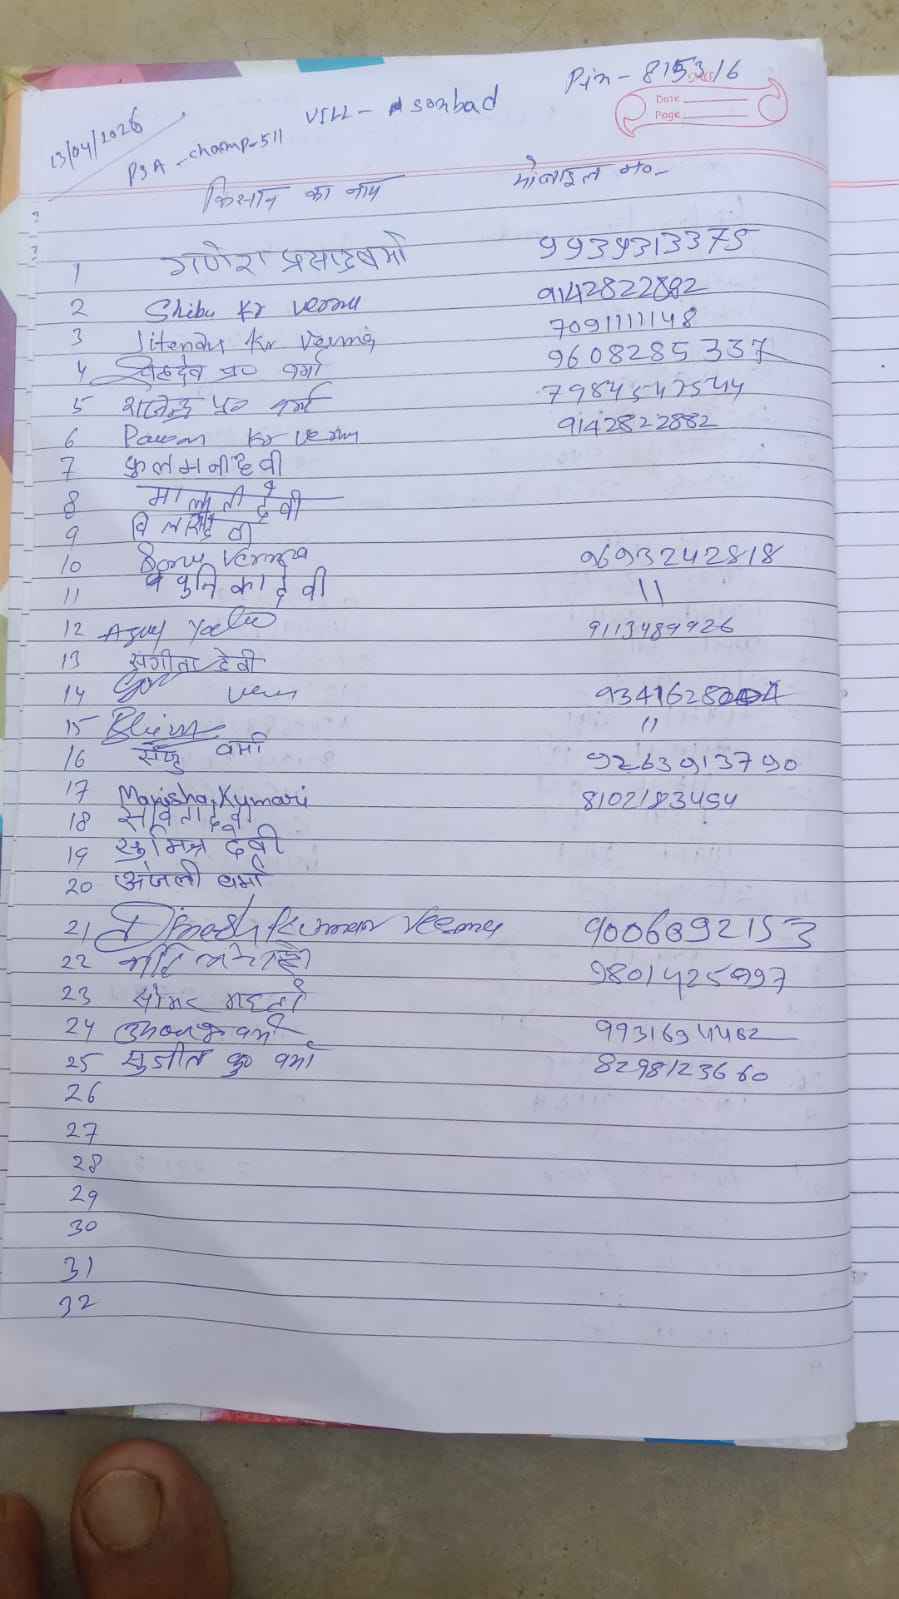 Pin - 815316
VILL - Asonbad
Date
Page
13/04/2026
PSA - champ-511
किसान का नाम मोबाइल नं०-
1 गणेश प्रसाद वर्मा 9934313375
2 Shibu Kr verma 9142822882
3 Jitendra Kr Verma 7091111148
4 प्र० वर्मा 9608285337
5 राजेन्द्र प्र० वर्मा 7984547544
6 Pawan Kr verma 9142822882
7 फुलमनी देवी
8 मालती देवी
9 देवी
10 Sonu Verma 9693242818
11 देवी 11
12 9113489926
13 संगीता देवी
14 9341628
15 11
16 वर्मा 9263913790
17 Manisha Kumari 8102183454
18 सविता देवी
19 सुमित्रा देवी
20 अंजली वर्मा
21 Dinesh Kumar Verma 9006892153
22 9801425997
23 महतो
24 वर्मा 9931694482
25 सुजीत कु० वर्मा 8298123660
26
27
28
29
30
31
32